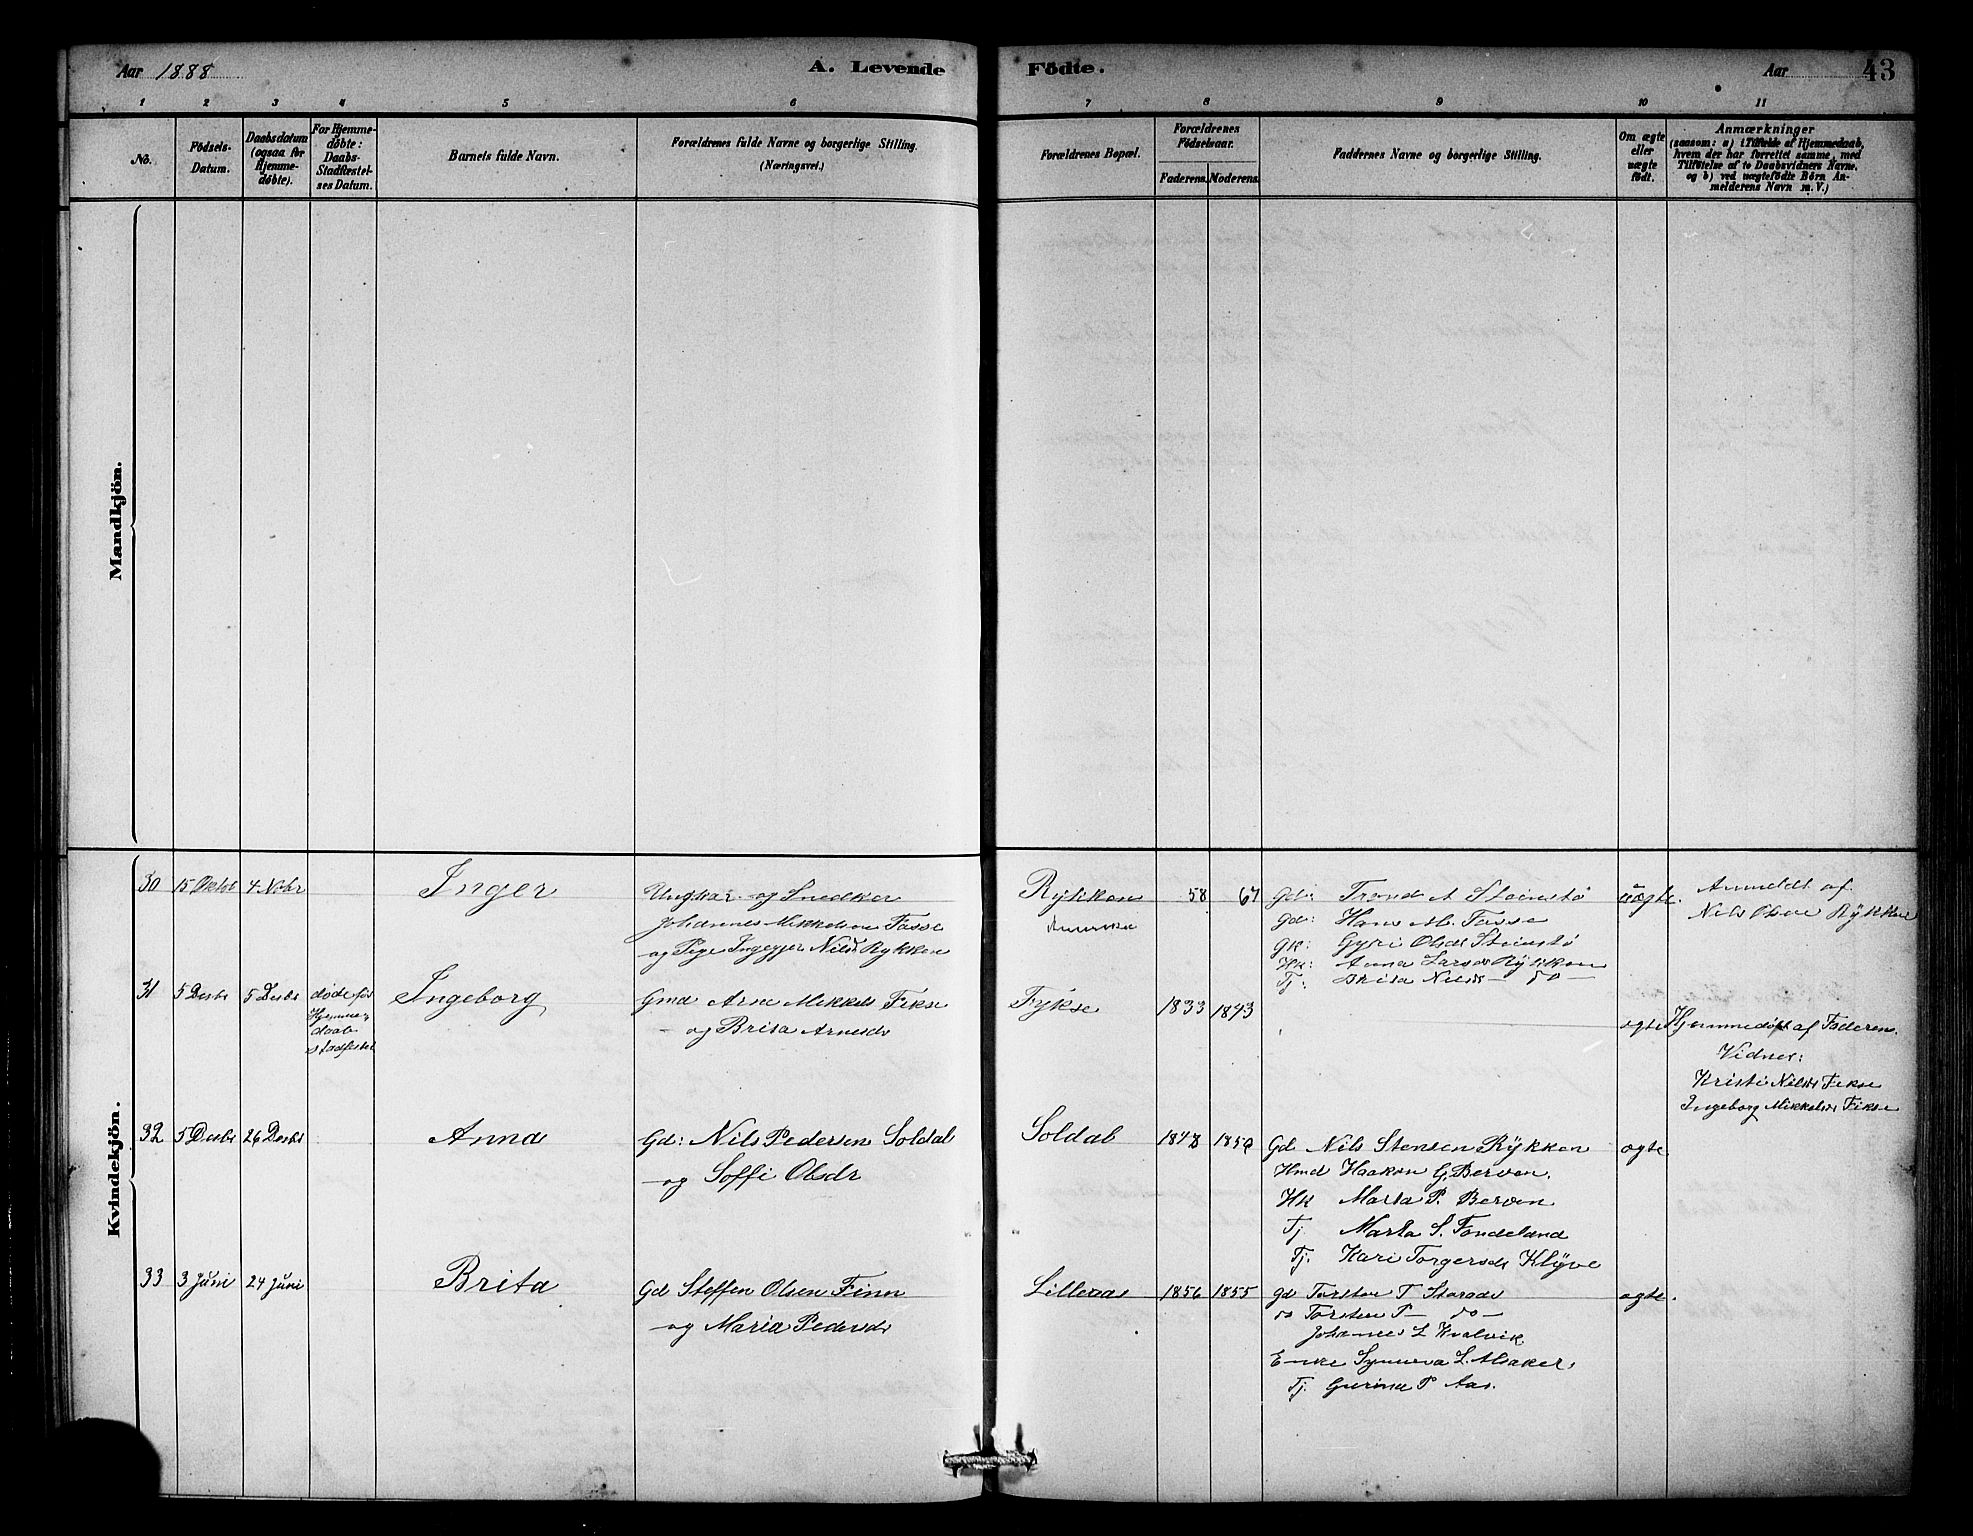 Aar 1888 A. Levende Fødte. Aar 43
1 2 3 4 5 6 7 8 9 10 11
No.
Fødsels-Datum.
Daabsdatum (ogsaa for Hjemme-døbte).
For Hjemme-døbte: Daabs-Stadfæstel-ses Datum.
Barnets fulde Navn.
Forældrenes fulde Navne og borgerlige Stilling. (Næringsvei.)
Forældrenes Bopæl.
Forældrenes Fødselsaar.
Faderens. Moderens.
Faddernes Navne og borgerlige Stilling.
Om ægte eller uægte født.
Anmærkninger
(saasom: a) i Tilfælde af Hjemmedaab,
hvem der har forrettet samme, med
Tilføielse af to Daabsvidners Navne,
og b) ved uægtefødte Børn An-
melderens Navn m. V.)
Mandkjön.
Kvindekjön.
30 15 Oktbr 4 Nobr Inger
Ungkar og Snedker
Johannes Mikkelsen Tosse
og Pige Ingegjer Nilsdr Rykken
Rykken
Amerika
58 67
Gd: Trond A Steinstø
Gd: Hans M. Tosse
Gk: Gyri Olsdr Steinstø
Hk: Anna Larsdr Rykken
Tj: Brita Nilsdr — do —
uægte.
Anmeldt af
Nils Olsen Rykken
31 5 Desbr 5 Desbr døde før
Hjemme-
daab
stadfestet
Ingeborg
Gmd Arne Mikkels Fikse
— og Brita Arnesdr
Fykse 1833 1843
ægte
Hjemmedøbt af Faderen.
Vidner:
Kristi Nilsdr Fikse
Ingeborg Mikkelsdr Fikse
32 5 Desbr 26 Desbr Anna
Gd: Nils Pedersen Soldal
— og Soffi Olsdr
Soldal 1848 1850
Gd Nils Stensen Rykken
Hmd Haakon G. Berven.
Hk Marta P. Berven
Tj. Marta S. Fondeland
Tj. Kari Torgersdr Klyve
ægte.
33 3 Juni 24 Juni Brita
Gd Steffen Olsen Finn
— og Maria Pedersdr
Lilleaas 1856 1855
Gd Torsten T
do Torsten P — do —
Johannes L Kvalvik
Enke Synneva L. Aksaker
Tj. Gurina P Aas.
ægte.